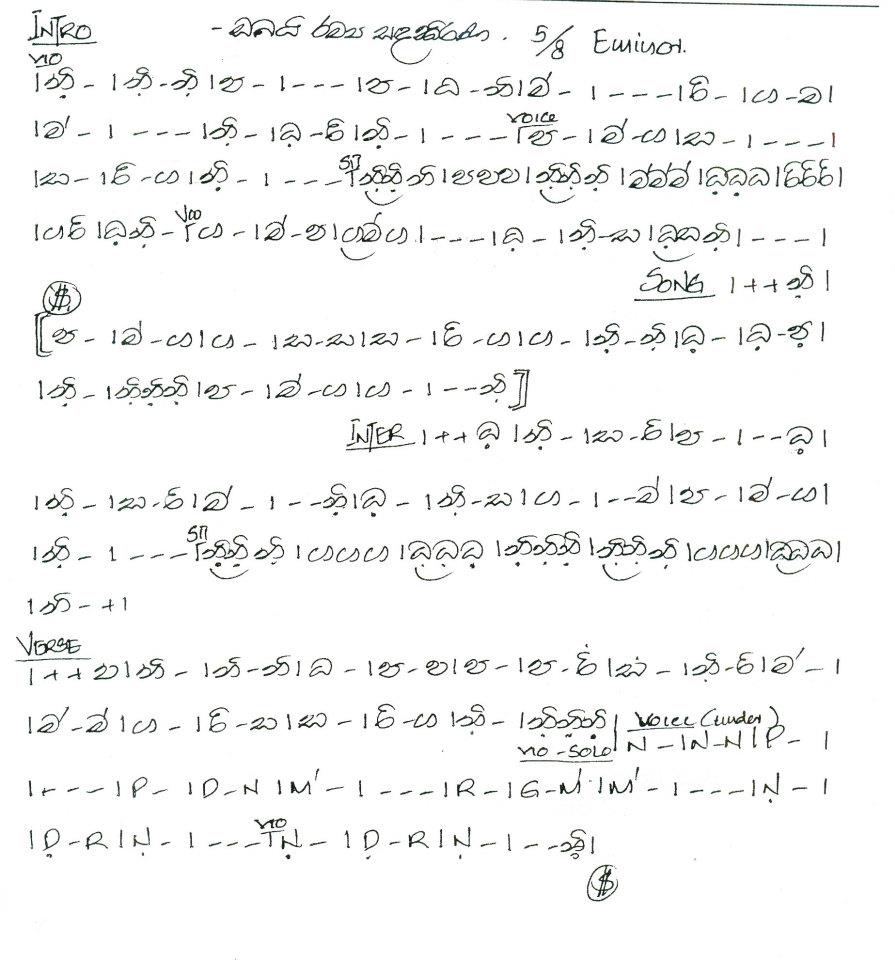 INTRO - ඔබයි රම්‍ය සඳකිරණ . 5/8 Eminor.
VIO
|නි̣ - |නි̣ - නි̣|ප - | - - - |ප - |ධ - නි|ම' - | - - - |රි - |ග - ම|
|ම' - | - - - |නි̣ - |ධ̣ - රි|නි̣ - | - - - VOICE |ප - |ම' - ග|ස - | - - - |
|ස - |රි - ග|නි̣ - | - - - |නි̣නි̣නි|පපප|නි̣නි̣නි̣|ම'ම'ම'|ධ̣ධ̣ධ|රිරිරි|
|ගරි|ධ̣නි̣ - |ග - |ම' - ප|ගම'ග| - - - |ධ̣ - |නි̣ - ස|ධ̣සනි̣| - - - |
SONG |++නි̣|
[ප - |ම' - ග|ග - |ස - ස|ස - |රි - ග|ග - |නි̣ - නි̣|ධ̣ - |ධ̣ - ප̣|
|නි̣ - |නි̣නි̣නි̣|ප - |ම' - ග|ග - | - - නි̣]
INTER |++ධ̣|නි̣ - |ස - රි|ප - | - - ධ̣|
|නි̣ - |ස - රි|ම' - | - - නි̣|ධ̣ - |නි̣ - ස|ග - | - - ම'|ප - |ම' - ග|
|නි̣ - | - - - |නි̣නි̣නි̣|ගගග|ධ̣ධ̣ධ̣|නි̣නි̣නි̣|නි̣නි̣නි̣|ගගග|ධ̣ධ̣ධ|
|නි - +|
VERSE
|++ප|නි - |නි - නි|ධ - |ප - ප|ප - |ප - රි̇|ස̇ - |නි̣ - රි|ම' - |
|ම' - ම'|ග - |රි - ස|ස - |රි - ග|නි̣ - |නි̣නි̣නි̣| VOICE (under)
VIO - SOLO N - |N - N|P - |
| - - - |P - |D - N|M' - | - - - |R - |G - M'|M' - | - - - |Ṇ - |
|Ḍ - R|Ṇ - | - - - VIO |Ṇ - |Ḍ - R|Ṇ - | - - නි̣|